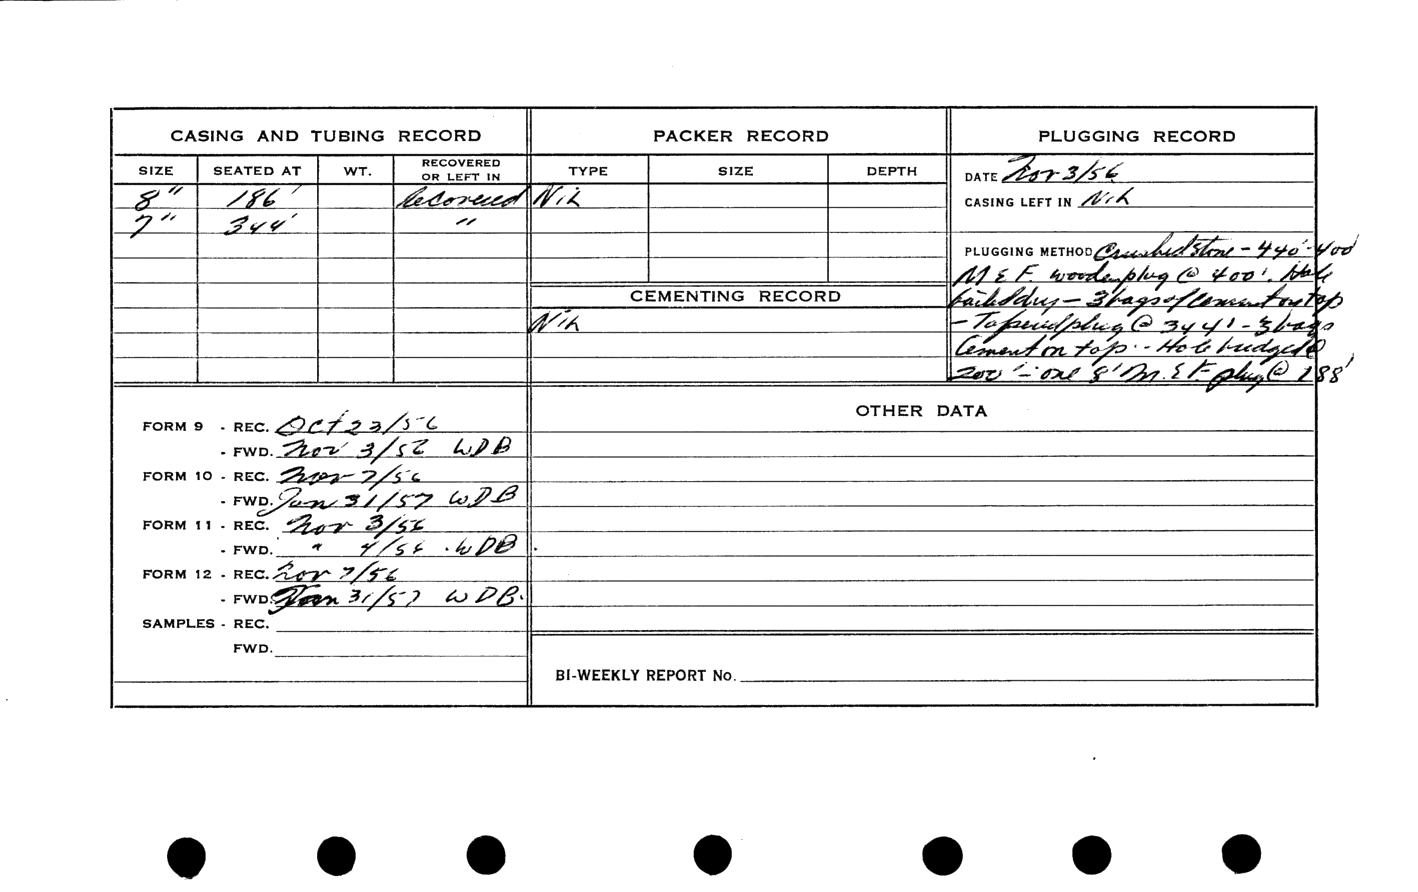 CASING AND TUBING RECORD
SIZE SEATED AT WT. RECOVERED OR LEFT IN
8" 186' Recovered
7" 344' "
PACKER RECORD
TYPE SIZE DEPTH
Nil
CEMENTING RECORD
Nil
PLUGGING RECORD
DATE Nov 3/56
CASING LEFT IN Nil
PLUGGING METHOD Crushed stone - 440'-400'
M & F. wooden plug @ 400'. Hole
bailed dry - 3 bags of cement on top
- Tapered plug @ 344' - 3 bags
Cement on top. - Hole bridged @
200' - one 8" M. & F. plug @ 188'
FORM 9 - REC. Oct 23/56
- FWD. Nov 3/56 WDB
FORM 10 - REC. Nov 7/56
- FWD. Jan 31/57 WDB
FORM 11 - REC. Nov 3/56
- FWD. " 4/56 . WDB
FORM 12 - REC. Nov 7/56
- FWD. Jan 31/57 WDB.
SAMPLES - REC.
FWD.
OTHER DATA
BI-WEEKLY REPORT No.